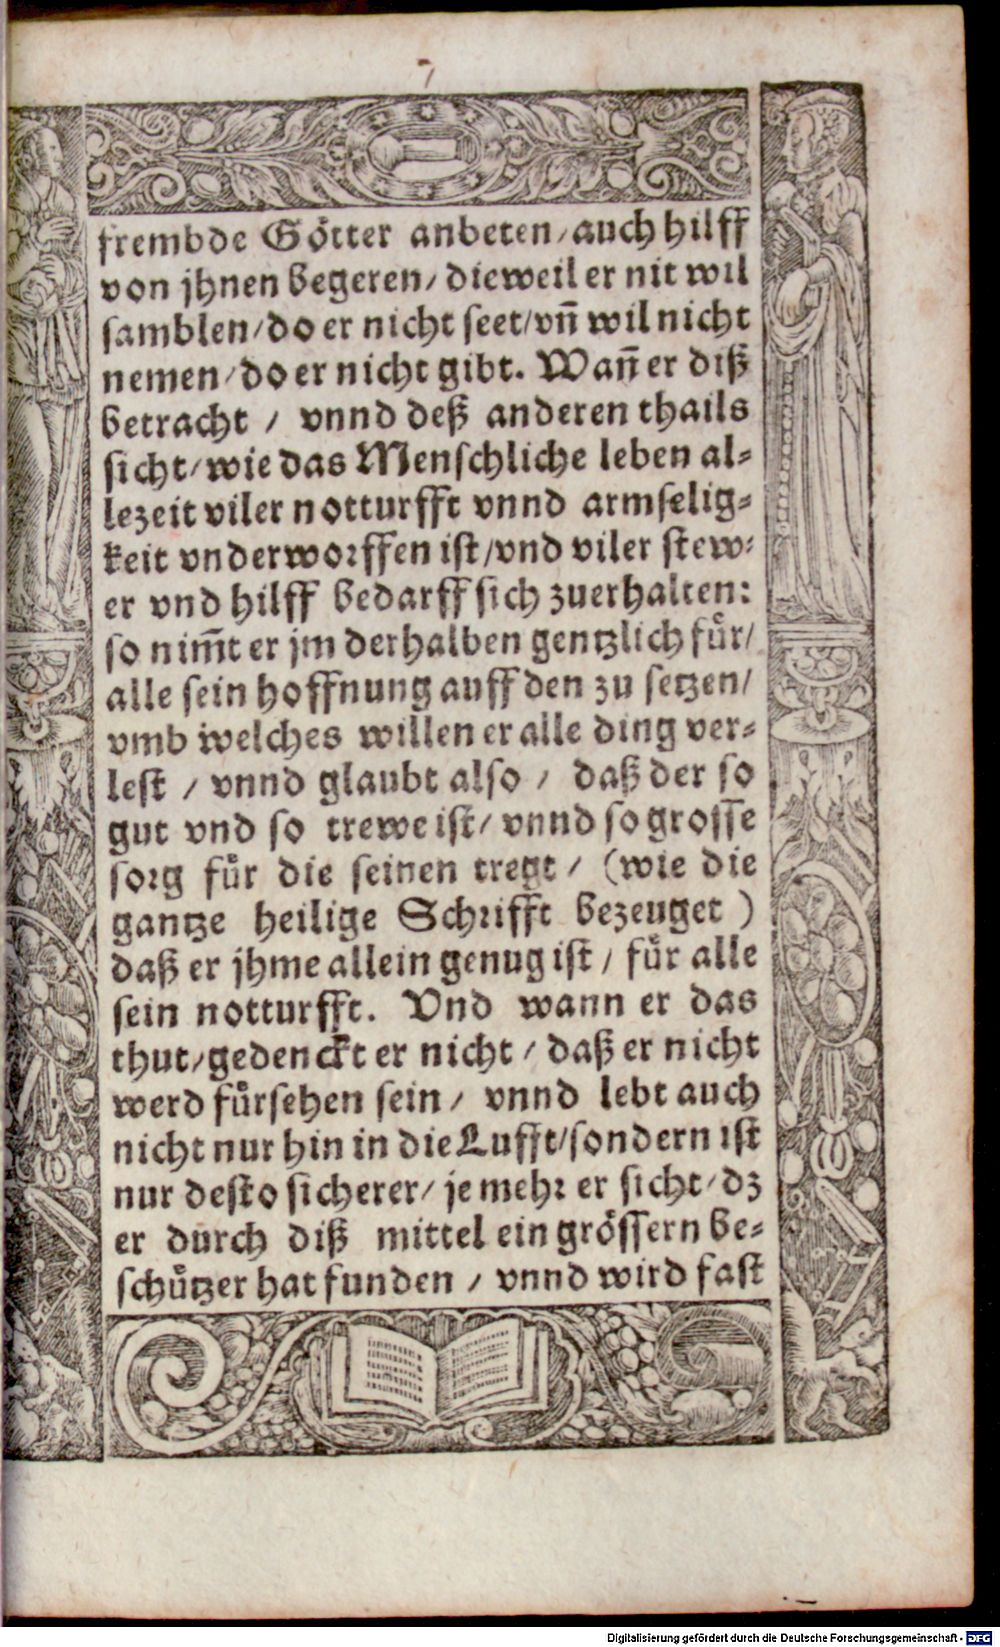 7
frembde Götter anbeten/auch hilff
von jhnen begeren/ dieweil er nit wil
samblen/do er nicht seet/vñ wil nicht
nemen/do er nicht gibt. Wañ er diß
betracht / vnnd deß anderen thails
sicht/wie das Menschliche leben al-
lezeit viler notturfft vnnd armselig-
keit vnderworffen ist/vnd viler stew-
er vnd hilff bedarff sich zuerhalten:
so nim̃t er jm derhalben gentzlich für/
alle sein hoffnung auff den zu setzen/
vmb welches willen er alle ding ver-
lest / vnnd glaubt also / daß der so
gut vnd so trewe ist/ vnnd so grosse
sorg für die seinen tregt / (wie die
gantze heilige Schrifft bezeuget )
daß er jhme allein genug ist / für alle
sein notturfft. Vnd wann er das
thut/gedenckt er nicht / daß er nicht
werd fürsehen sein / vnnd lebt auch
nicht nur hin in die Lufft/sondern ist
nur desto sicherer/ je mehr er sicht/ dz
er durch diß mittel ein grössern be-
schützer hat funden / vnnd wird fast
Digitalisierung gefördert durch die Deutsche Forschungsgemeinschaft - DFG